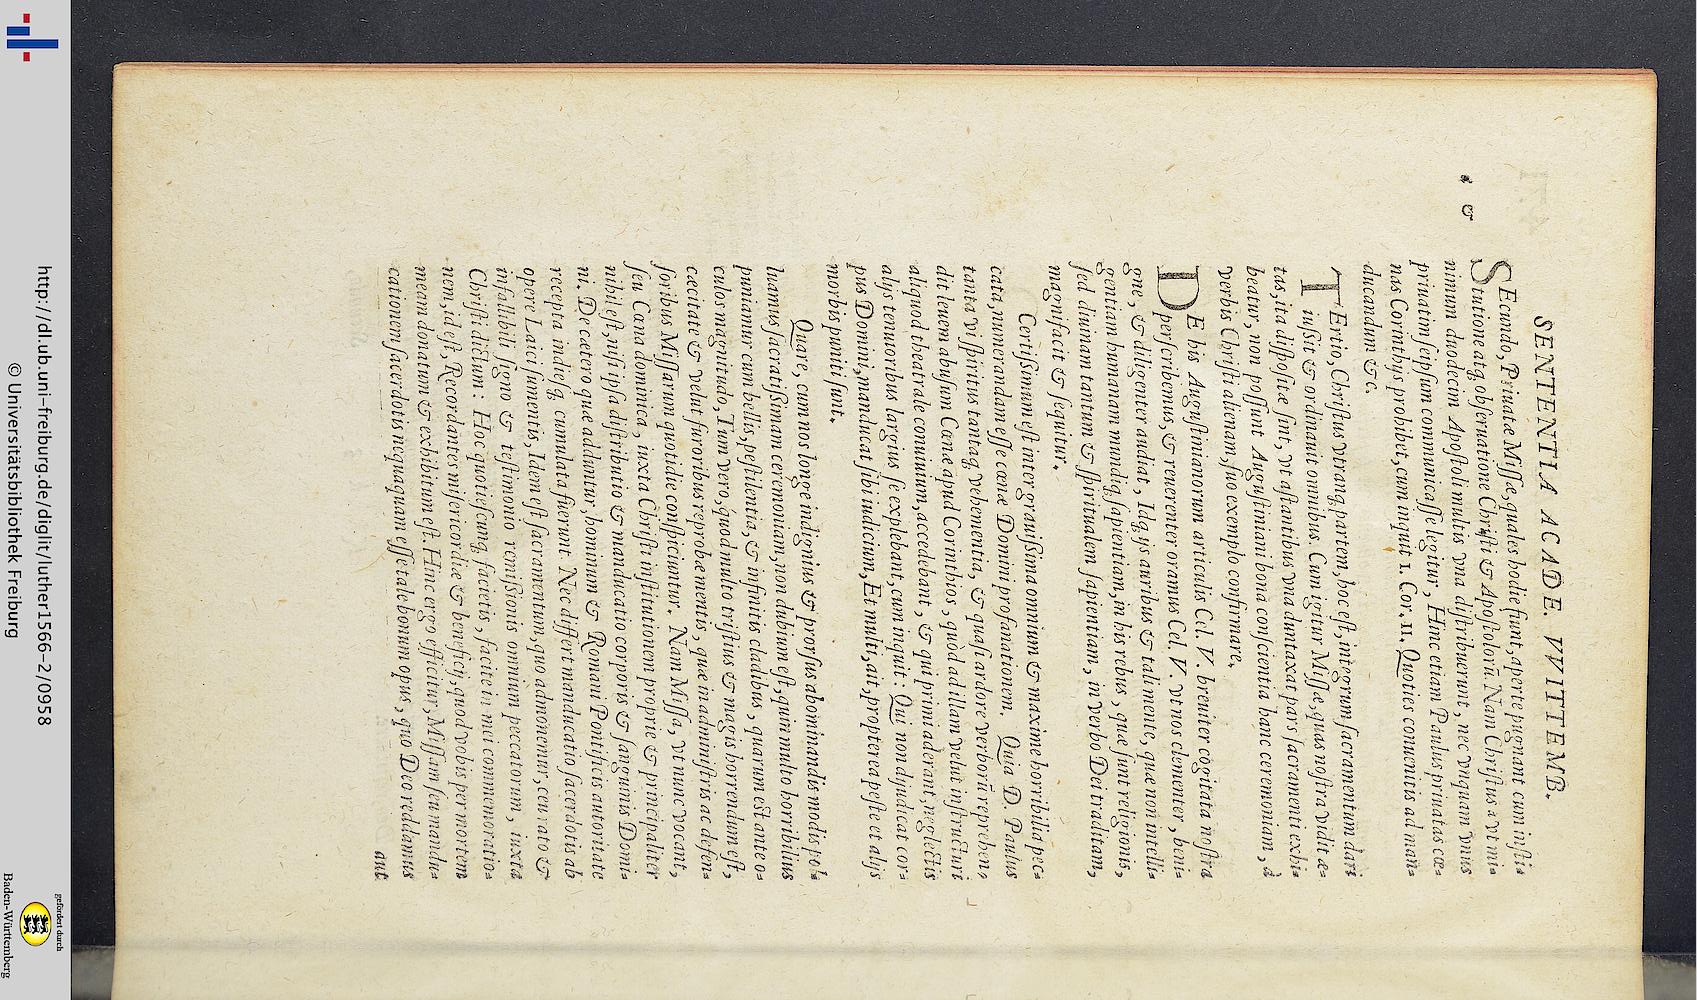 SENTENTIA ACADE. VVITTEMB.
SEcundo, Priuatæ Missæ, quales hodie sunt, aperte pugnant cum insti-
tutione atq; obseruatione Christi & Apostolorũ. Nam Christus a vt mi-
nimum duodecim Apostoli multis vna distribuerunt, nec vnquam vnus
priuatim seipsum communicasse legitur, Hinc etiam Paulus priuatas cœ-
nas Corinthijs prohibet, cum inquit 1. Cor. 11. Quoties conuenitis ad man-
ducandum &c.
a &
TErtio, Christus vtranq; partem, hoc est, integrum sacramentum dari
iußit & ordinauit omnibus. Cum igitur Missæ, quas nostra vidit æ-
tas, ita dispositæ sint, vt astantibus vna duntaxat pars sacramenti exhi-
beatur, non possunt Augustiniani bona conscientia hanc ceremoniam, à
verbis Christi alienam, suo exemplo confirmare.
DE his Augustinianorum articulis Cel. V. breuiter cogitata nostra
perscribemus, & reuerenter oramus Cel. V. vt nos clementer, beni-
gne, & diligenter audiat, Idq; ijs auribus & tali mente, quæ non intelli-
gentiam humanam mundiq; sapientiam, in his rebus, quæ sunt religionis,
sed diuinam tantum & spiritualem sapientiam, in verbo Dei traditam,
magnifacit & sequitur.
Certißimum est inter grauißima omnium & maxime horribilia pec-
cata, numerandam esse cœnæ Domini profanationem. Quia D. Paulus
tanta vi spiritus tantaq; vehementia, & quasi ardore verborũ reprehen-
dit leuem abusum Cœnæ apud Corinthios, quòd ad illam velut instructuri
aliquod theatrale conuiuium, accedebant, & qui primi aderant, neglectis
alijs tenuioribus largius se explebant, cum inquit: Qui non dijudicat cor-
pus Domini, manducat sibi iudicium, Et multi, ait, propterea peste et alijs
morbis puniti sunt.
Quare, cum nos longe indignius & prorsus abominandis modis pol-
luamus sacratißimam ceremoniam, non dubium est, quin multo horribilius
puniamur cum bellis, pestilentia, & infinitis cladibus, quarum est ante o-
culos magnitudo, Tum vero, quod multo tristius & magis horrendum est,
cæcitate & velut furoribus reprobæ mentis, quæ in administris ac defen-
soribus Missarum quotidie conspiciuntur. Nam Missa, vt nunc vocant,
seu Cœna dominica, iuxta Christi institutionem proprie & principaliter
nihil est, nisi ipsa distributio & manducatio corporis & sanguinis Domi-
ni. De cætero quæ adduntur, hominum & Romani Pontificis autoritate
recepta indiesq; cumulata fuerunt. Nec differt manducatio sacerdotis ab
opere Laici sumentis, Idem est sacramentum, quo admonemur, ceu rato &
infallibili signo & testimonio remißionis omnium peccatorum, iuxta
Christi dictum: Hoc quotiescunq; facietis, facite in mei commemoratio-
nem, id est, Recordantes misericordiæ & beneficij, quod vobis per mortem
meam donatum & exhibitum est. Hinc ergo efficitur, Missam seu mandu-
cationem sacerdotis nequaquam esse tale bonum opus, quo Deo reddamus
aut
http://dl.ub.uni-freiburg.de/diglit/luther1566-2/0958
© Universitätsbibliothek Freiburg
gefördert durch
Baden-Württemberg